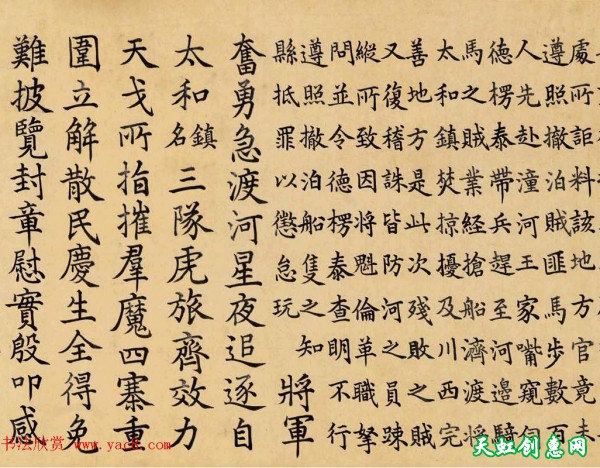 處所詎料該地方官竟未
遵照撤泊賊匪馬步數百
人先赴潼河王家嘴窺伺
德楞泰帶兵趕至河邊騎
馬之賊業經搶船濟渡將
太和鎮焚掠擾及川西完
善地方是此次殘敗之賊
又復稽誅皆防河之員踈
縱所致因將魁倫革職拏
問並令德楞泰查明不行
遵照撤泊船隻之知
縣抵罪以懲怠玩
將軍
奮勇急渡河星夜追逐自
太和鎮名三隊虎旅齊效力
天戈所指摧羣魔四寨重
圍立解散民慶生全得免
難披覽封章慰實殷叩感
书法欣赏
天虹创意网